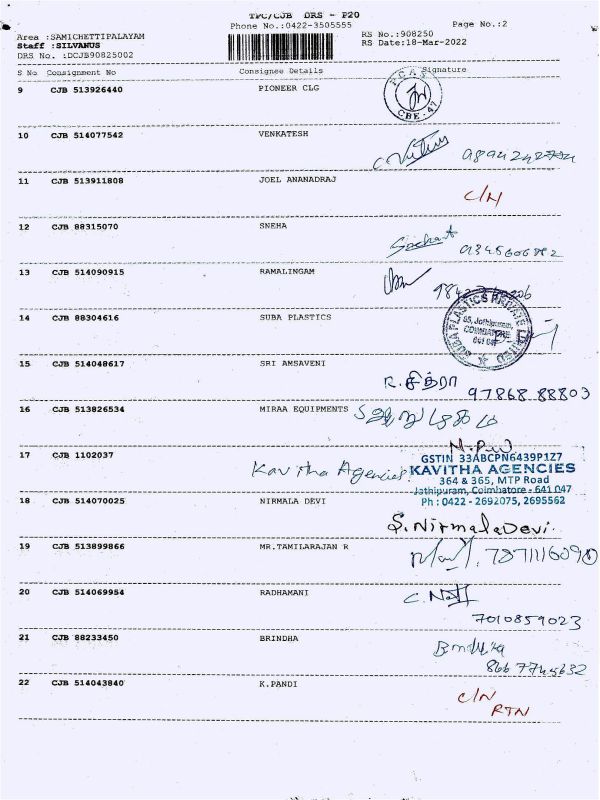 TPC/CJB DRS - P20
Phone No.:0422-3505555
Page No.:2
Area :SAMICHETTIPALAYAM
Staff :SILVANUS
DRS No. :DCJB90825002
RS No.:908250
RS Date:18-Mar-2022
S No Consignment No Consignee Details Signature
9 CJB 513926440 PIONEER CLG
PCAS
CBE-47
10 CJB 514077542 VENKATESH
11 CJB 513911808 JOEL ANANADRAJ
C/N
12 CJB 88315070 SNEHA
13 CJB 514090915 RAMALINGAM
14 CJB 88304616 SUBA PLASTICS
SUBA PLASTICS PRIVATE LIMITED
Jothipuram,
COIMBATORE
641 047
15 CJB 514048617 SRI AMSAVENI
R.சித்ரா
97868.88803
16 CJB 513826534 MIRAA EQUIPMENTS
17 CJB 1102037
Kavitha Agencies.
GSTIN 33ABCPN6439P1Z7
KAVITHA AGENCIES
364 & 365, MTP Road
Jothipuram, Coimbatore - 641 047
Ph : 0422 - 2692075, 2695562
18 CJB 514070025 NIRMALA DEVI
S.Nirmala Devi.
19 CJB 513899866 MR.TAMILARAJAN R
7871116090
20 CJB 514069954 RADHAMANI
7010859023
21 CJB 88233450 BRINDHA
Brindha
866 7745632
22 CJB 514043840 K.PANDI
C/N
RTN